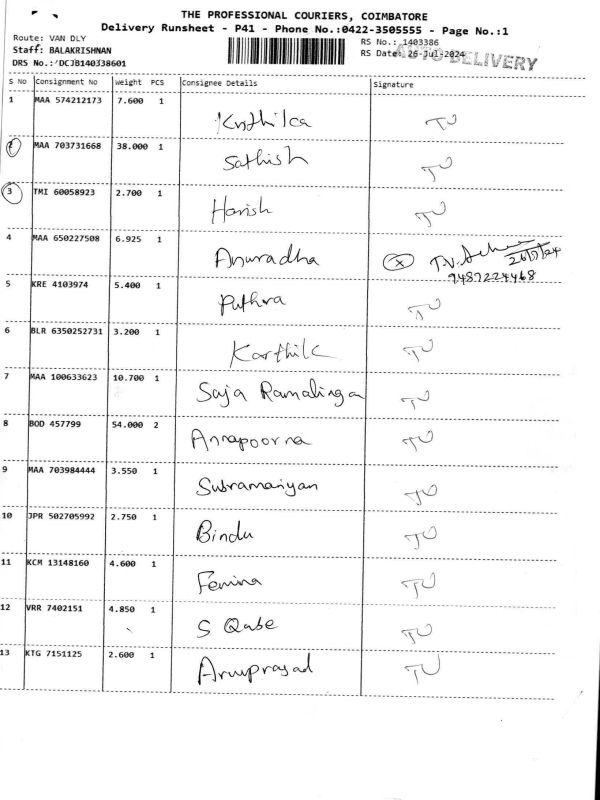 THE PROFESSIONAL COURIERS, COIMBATORE
Delivery Runsheet - P41 - Phone No.:0422-3505555 - Page No.:1
Route: VAN DLY
RS No.: 1403386
Staff: BALAKRISHNAN
RS Date: 26-Jul-2024
DELIVERY
DRS No.: DCJB140338601
S No Consignment No Weight PCS Consignee Details Signature
1 MAA 574212173 7.600 1 Krithika TU
2 MAA 703731668 38.000 1 Sathish TU
3 TMI 60058923 2.700 1 Harish TU
4 MAA 650227508 6.925 1 Anuradha X T.V. 26/7/24
9487224468
5 KRE 4103974 5.400 1 Puthra TU
6 BLR 6350252731 3.200 1 Karthik TU
7 MAA 100633623 10.700 1 Saja Ramalinga TU
8 BOD 457799 54.000 2 Annapoorna TU
9 MAA 703984444 3.550 1 Subramaniyan TU
10 JPR 502705992 2.750 1 Bindu TU
11 KCM 13148160 4.600 1 Femina TU
12 VRR 7402151 4.850 1 S TU
13 KTG 7151125 2.600 1 Arunprasad TU